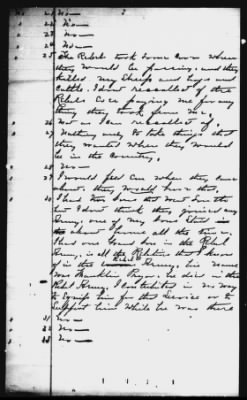 21 No—
22 No—
23 No—
24 No—
25 The Rebels took some corn when
they would be passing, and they
killed my sheep and hogs and
cattle. I dont recollect of the
Rebels ever paying me for any
thing they took from me,
26 Not as I can recollect of,
27 Nothing only to take things that
they wanted when they would
be in the Country.
28 No—
29 I would feed em when they came
about. they would have this.
30 I had two sons that went from the
but I dont think they joined any
Army, one of my Sons
about home all the time.
I had one Grand son in the Rebel
Army, is all the Relation that I know
of in the Rebel Army, his name
was Franklin Pryor. he died in the
Rebel Army. I contributed in no way
to equip him for this Service or to
support him while he was there
31 No—
32 No—
33 No—